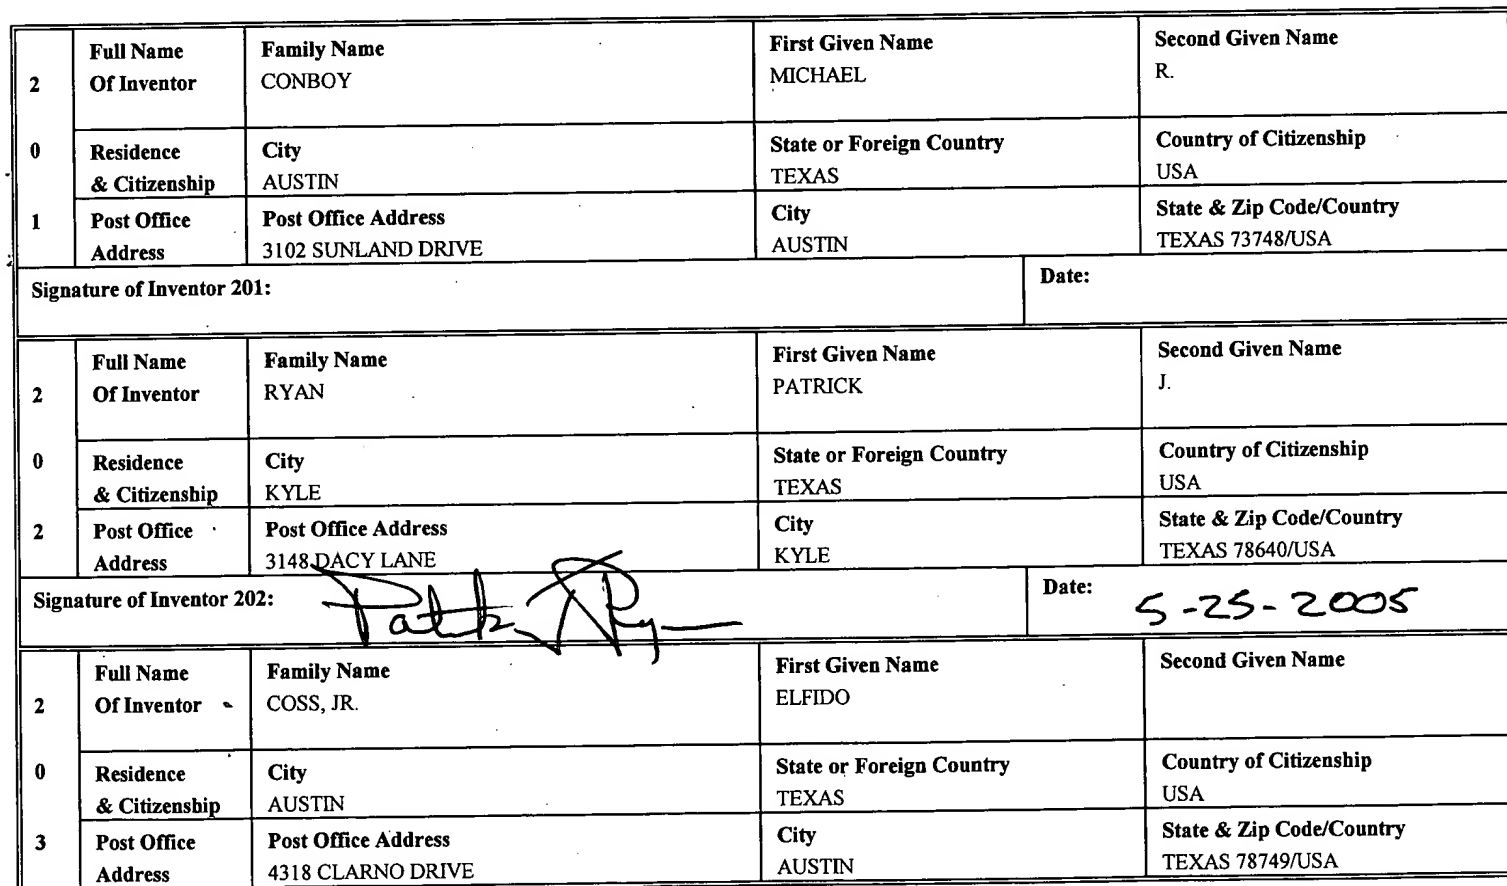 Full Name Of Inventor Family Name CONBOY First Given Name MICHAEL Second Given Name R.
2
0
1
Residence & Citizenship City AUSTIN State or Foreign Country TEXAS Country of Citizenship USA
Post Office Address Post Office Address 3102 SUNLAND DRIVE City AUSTIN State & Zip Code/Country TEXAS 73748/USA
Signature of Inventor 201: Date:
Full Name Of Inventor Family Name RYAN First Given Name PATRICK Second Given Name J.
2
0
2
Residence & Citizenship City KYLE State or Foreign Country TEXAS Country of Citizenship USA
Post Office Address Post Office Address 3148 DACY LANE City KYLE State & Zip Code/Country TEXAS 78640/USA
Signature of Inventor 202: Date: 5-25-2005
Full Name Of Inventor Family Name COSS, JR. First Given Name ELFIDO Second Given Name
2
0
3
Residence & Citizenship City AUSTIN State or Foreign Country TEXAS Country of Citizenship USA
Post Office Address Post Office Address 4318 CLARNO DRIVE City AUSTIN State & Zip Code/Country TEXAS 78749/USA